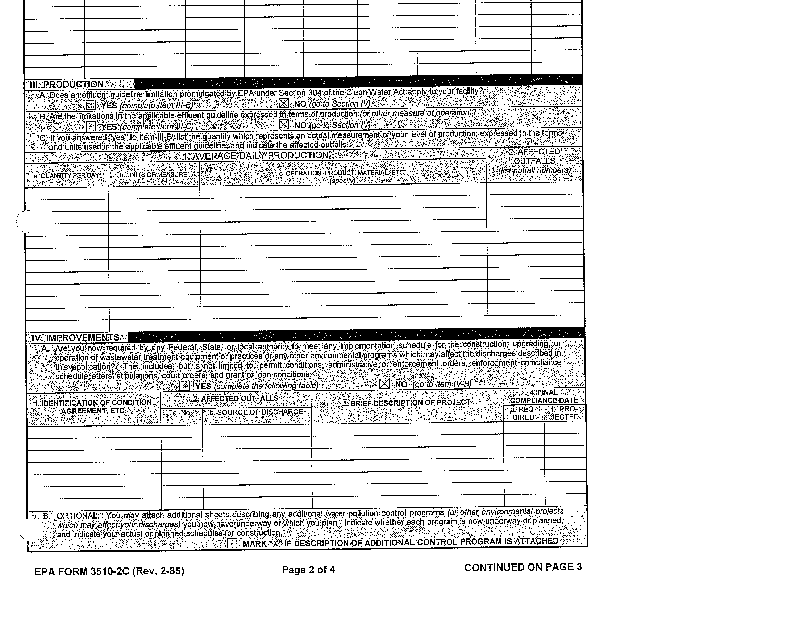 III. PRODUCTION
A. Does an effluent guideline limitation promulgated by EPA under Section 304 of the Clean Water Act apply to your facility?
YES (complete Item III-B) NO (go to Section IV)
B. Are the limitations in the applicable effluent guideline expressed in terms of production (or other measure of operation)?
YES (complete Item III-C) NO (go to Section IV)
C. If you answered "yes" to Item III-B, list the quantity which represents an actual measurement of your level of production, expressed in the terms
and units used in the applicable effluent guideline, and indicate the affected outfalls.
1. AVERAGE DAILY PRODUCTION
2. AFFECTED
OUTFALLS
(list outfall numbers)
a. QUANTITY PER DAY b. UNITS OF MEASURE c. OPERATION, PRODUCT, MATERIAL, ETC.
(specify)
IV. IMPROVEMENTS
A. Are you now required by any Federal, State, or local authority to meet any implementation schedule for the construction, upgrading, or
operation of wastewater treatment equipment or practices or any other environmental programs which may affect the discharges described in
this application? This includes, but is not limited to, permit conditions, administrative or enforcement orders, enforcement compliance
schedule letters, stipulations, court orders, and grant or loan conditions.
YES (complete the following table) NO (go to Item IV-B)
1. IDENTIFICATION OF CONDITION,
AGREEMENT, ETC.
2. AFFECTED OUTFALLS
a. No. b. SOURCE OF DISCHARGE
3. BRIEF DESCRIPTION OF PROJECT
4. FINAL
COMPLIANCE DATE
a. REQUIRED b. PROJECTED
B. OPTIONAL: You may attach additional sheets describing any additional water pollution control programs (or other environmental projects
which may affect your discharges) you now have underway or which you plan. Indicate whether each program is now underway or planned,
and indicate your actual or planned schedules for construction.
MARK "X" IF DESCRIPTION OF ADDITIONAL CONTROL PROGRAM IS ATTACHED
EPA FORM 3510-2C (Rev. 2-85) Page 2 of 4 CONTINUED ON PAGE 3